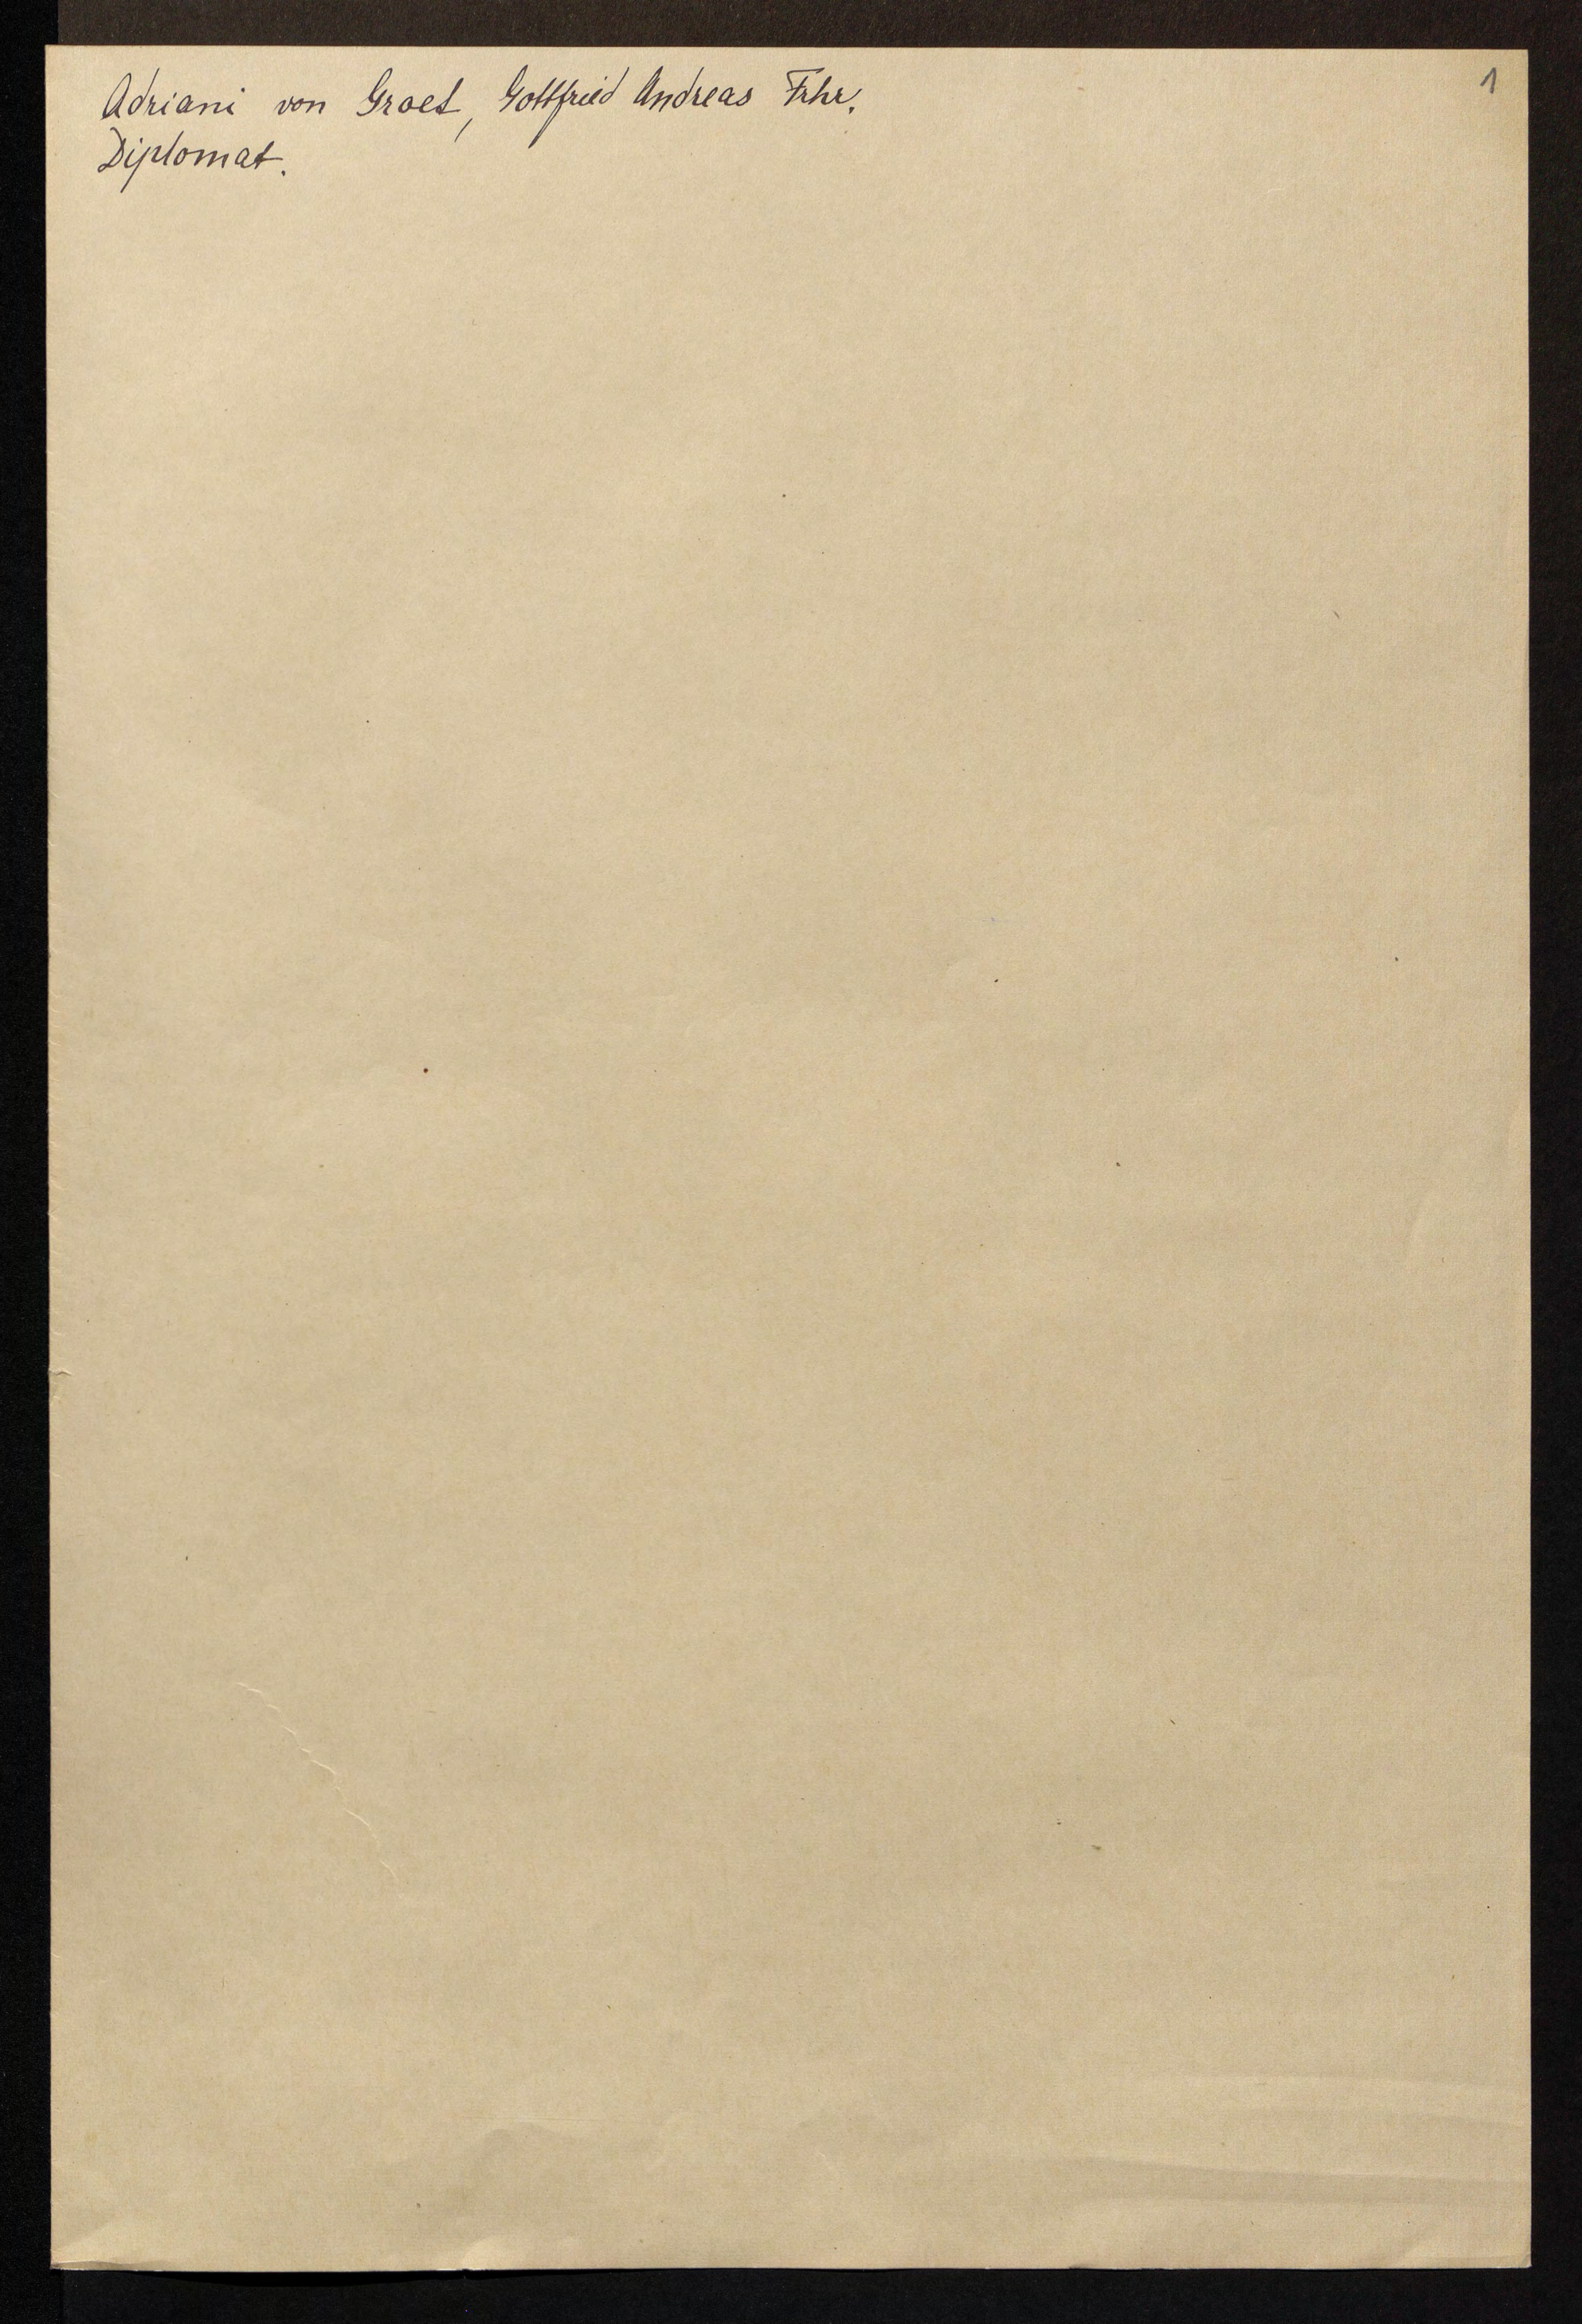 Adriani von Groet, Gottfried Andreas Frhr.
1
Diplomat.